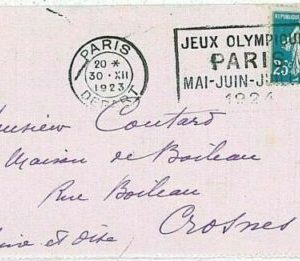 PARIS
20 *
30 • XII
1923
DEPART
JEUX OLYMPIQU
PARI
MAI-JUIN-JU
1924
25c
nsieur Coutard
Maison de Boileau
Rue Boileau
Crosnes
ine et Oise